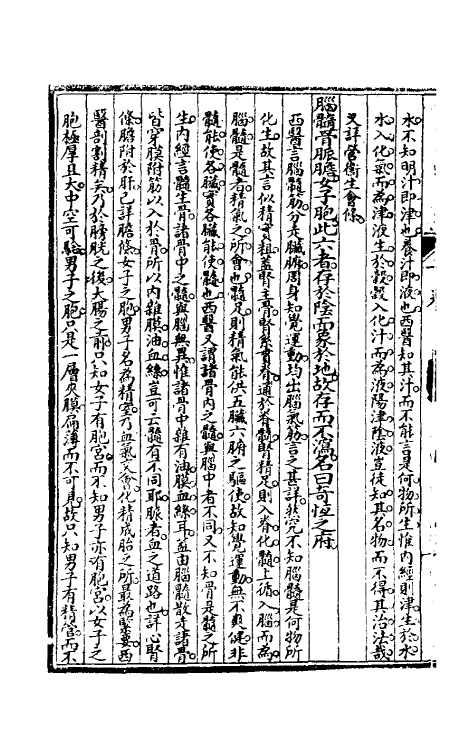 水不知明汁即津也養汁即液也西醫知其汁而不能言是何物所生惟內經則津生於水
水入化氣而為津液生於穀穀入化汁而為液陽津陰液豈徒知其名物而不得其治法哉
又詳營衛生會條
腦髓骨脈膽女子胞此六者存於陰而象於地故存而不瀉名曰奇恆之府
西醫言腦髓筋分走臟腑周身知覺運動均出腦氣筋言之甚詳然究不知腦髓是何物所
化生故其言似精實粗蓋腎主骨腎系貫脊通於脊髓腎精足則入脊化髓上循入腦而為
腦髓是髓者精氣之所會也髓足則精氣能供五臟六腑之驅使故知覺運動無不爽健非
髓能使各臟實各臟能使髓也西醫又謂諸骨內之髓與腦中者不同又不知骨是髓之所
生內經言髓生骨諸骨中之髓與腦無異惟諸骨中雜有油膜血絲耳蓋由腦髓散走諸骨
皆穿膜附筋以入於骨所以內雜膜油血絲豈可云髓有不同耶脈者血之道路也詳心腎
條膽附於肝已詳膽條女子之胞男子名為精室乃血氣交會化精成胎之所最為緊要西
醫剖割精矣乃於膀胱之後大腸之前只知女子有胞宮而不知男子亦有胞宮以女子之
胞極厚且大中空可驗男子之胞只是一層夾膜扁薄而不可見故只知男子有精宮而不